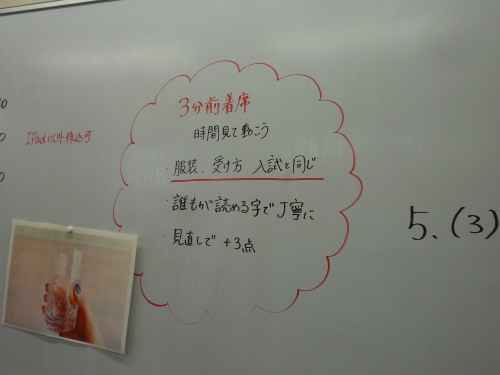 3分前着席
時間見て動こう
・服装、受け方 入試と同じ
・誰もが読める字で丁寧に
・見直しで +3点
5、(3)